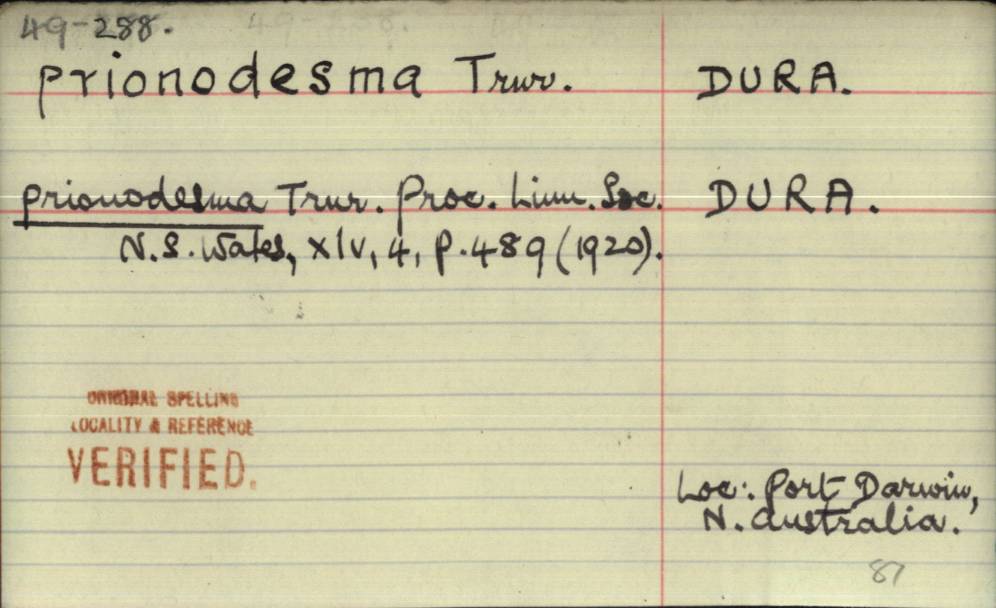 49-288.
prionodesma Turr. DURA.
prionodesma Turr. Proc. Linn. Soc. DURA.
N.S. Wales, xlv, 4, p. 489 (1920).
ORIGINAL SPELLING
LOCALITY & REFERENCE
VERIFIED.
Loc: Port Darwin,
N. Australia.
87